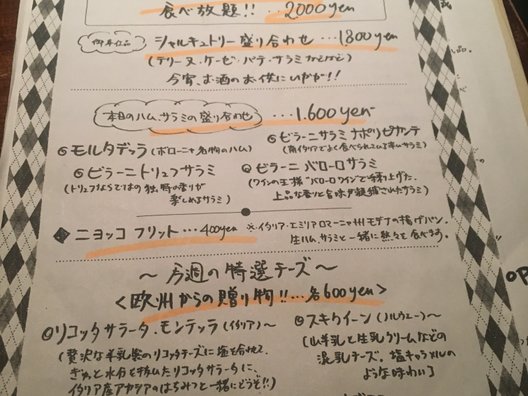 食べ放題!! … 2000yen
シャルキュトリー盛り合わせ … 1,800yen
(テリーヌ・ケーゼ・パテ・サラミ
今宵、お酒のお供にいかが!!
本日のハム、サラミの盛り合わせ …1,600yen
モルタデッラ (ボローニャ名物のハム)
ビラーニ ナポリピカンテ
(南イタリアでよく食べられている辛いサラミ)
ビラーニ トリュフサラミ
(トリュフならではの独特の香りが
楽しめるサラミ)
ビラーニ バローロサラミ
("ワインの王様"バローロワインで作り上げた、
上品な香りと旨味が凝縮されたサラミ)
ニョッコ フリット … 400yen
※イタリア・エミリアロマーニャ州モデナの揚げパン。
生ハム、サラミと一緒に熱々を食べます。
〜 今週の特選チーズ 〜
<欧州からの贈り物!! … 各600yen>
リコッタサラータ・モンテッラ (イタリア)〜
(贅沢な羊乳製のリコッタチーズに塩を合わせて、
ぎゅっと水分を抜いたリコッタサラータに、
イタリア産アカシアのはちみつと一緒にどうぞ!!)
スキクイーン (ノルウェー)〜
(山羊乳と生乳、クリームなどの
混乳チーズ。塩キャラメルの
ような味わい)